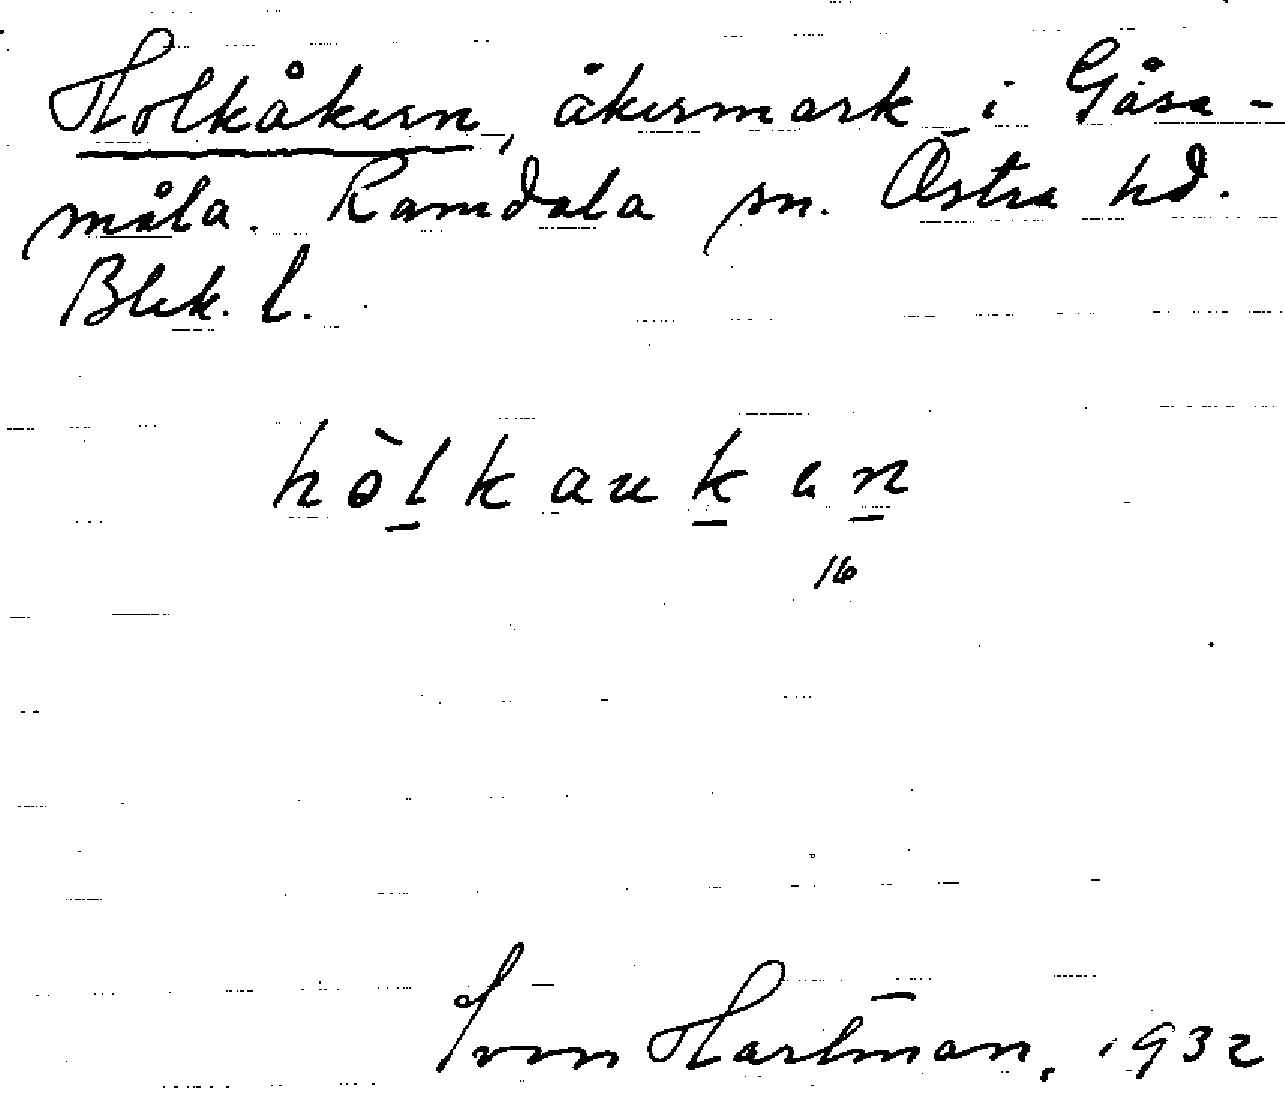 Holkåkern, åkermark i Gåsa-
måla. Ramdala sn. Östra hd.
Blek. l.
hòlkaukən
16
Sven Hartman, 1932